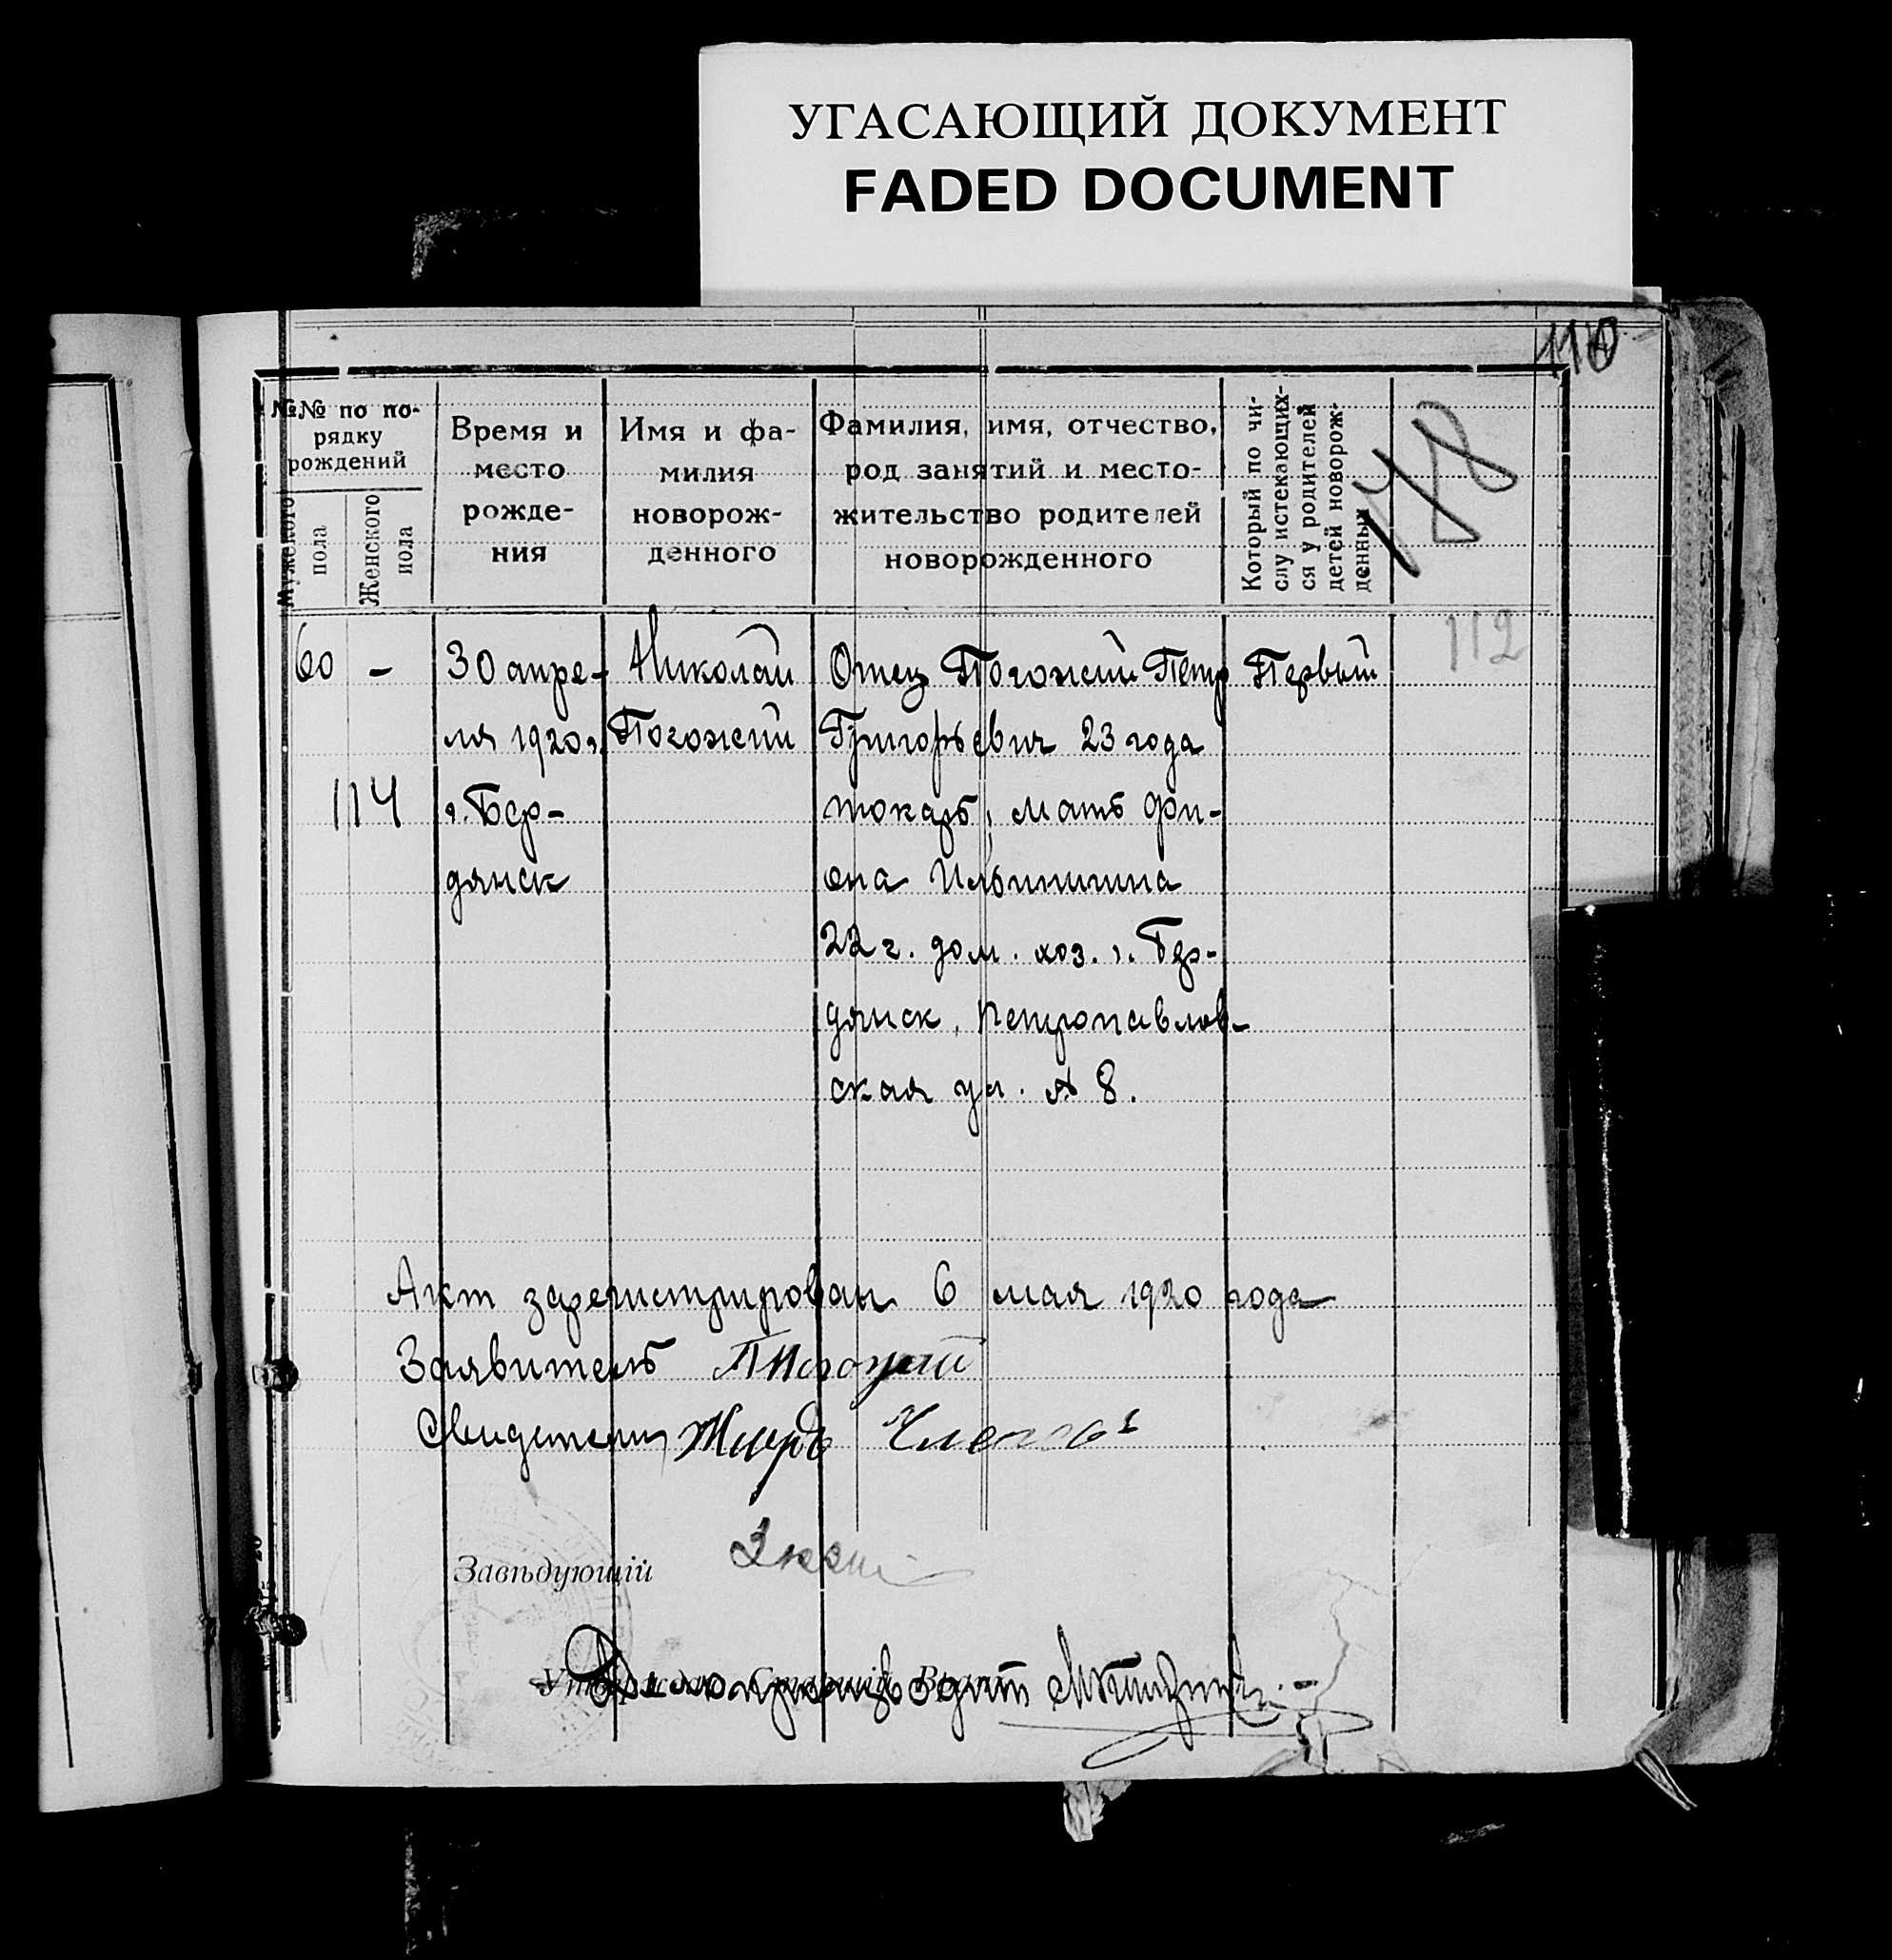 УГАСАЮЩИЙ ДОКУМЕНТ
FADED DOCUMENT
110
№№ по по-
рядку
рождений
Мужеского
пола
Женского
пола
Время и
место
рожде-
ния
Имя и фа-
милия
новорож-
денного
Фамилия, имя, отчество,
род занятий и место-
жительство родителей
новорожденного
Который по чи-
слу истекающих-
ся у родителей
детей новорож-
денный
112
60 - 30 апре- Николай Отец Погожий Петр Первый
ля 1920г. Погожий Григорьевич 23 года
114 г. Бер- токарь, мать Фи-
дянск она Ильинична
22 г. дом. хоз. г. Бер-
дянск, Петропавлов-
ская ул. № 8.
Акт зарегистрирован 6 мая 1920 года
Заявитель П Погожий
Свидетели
Завѣдующій
Делопроизводит